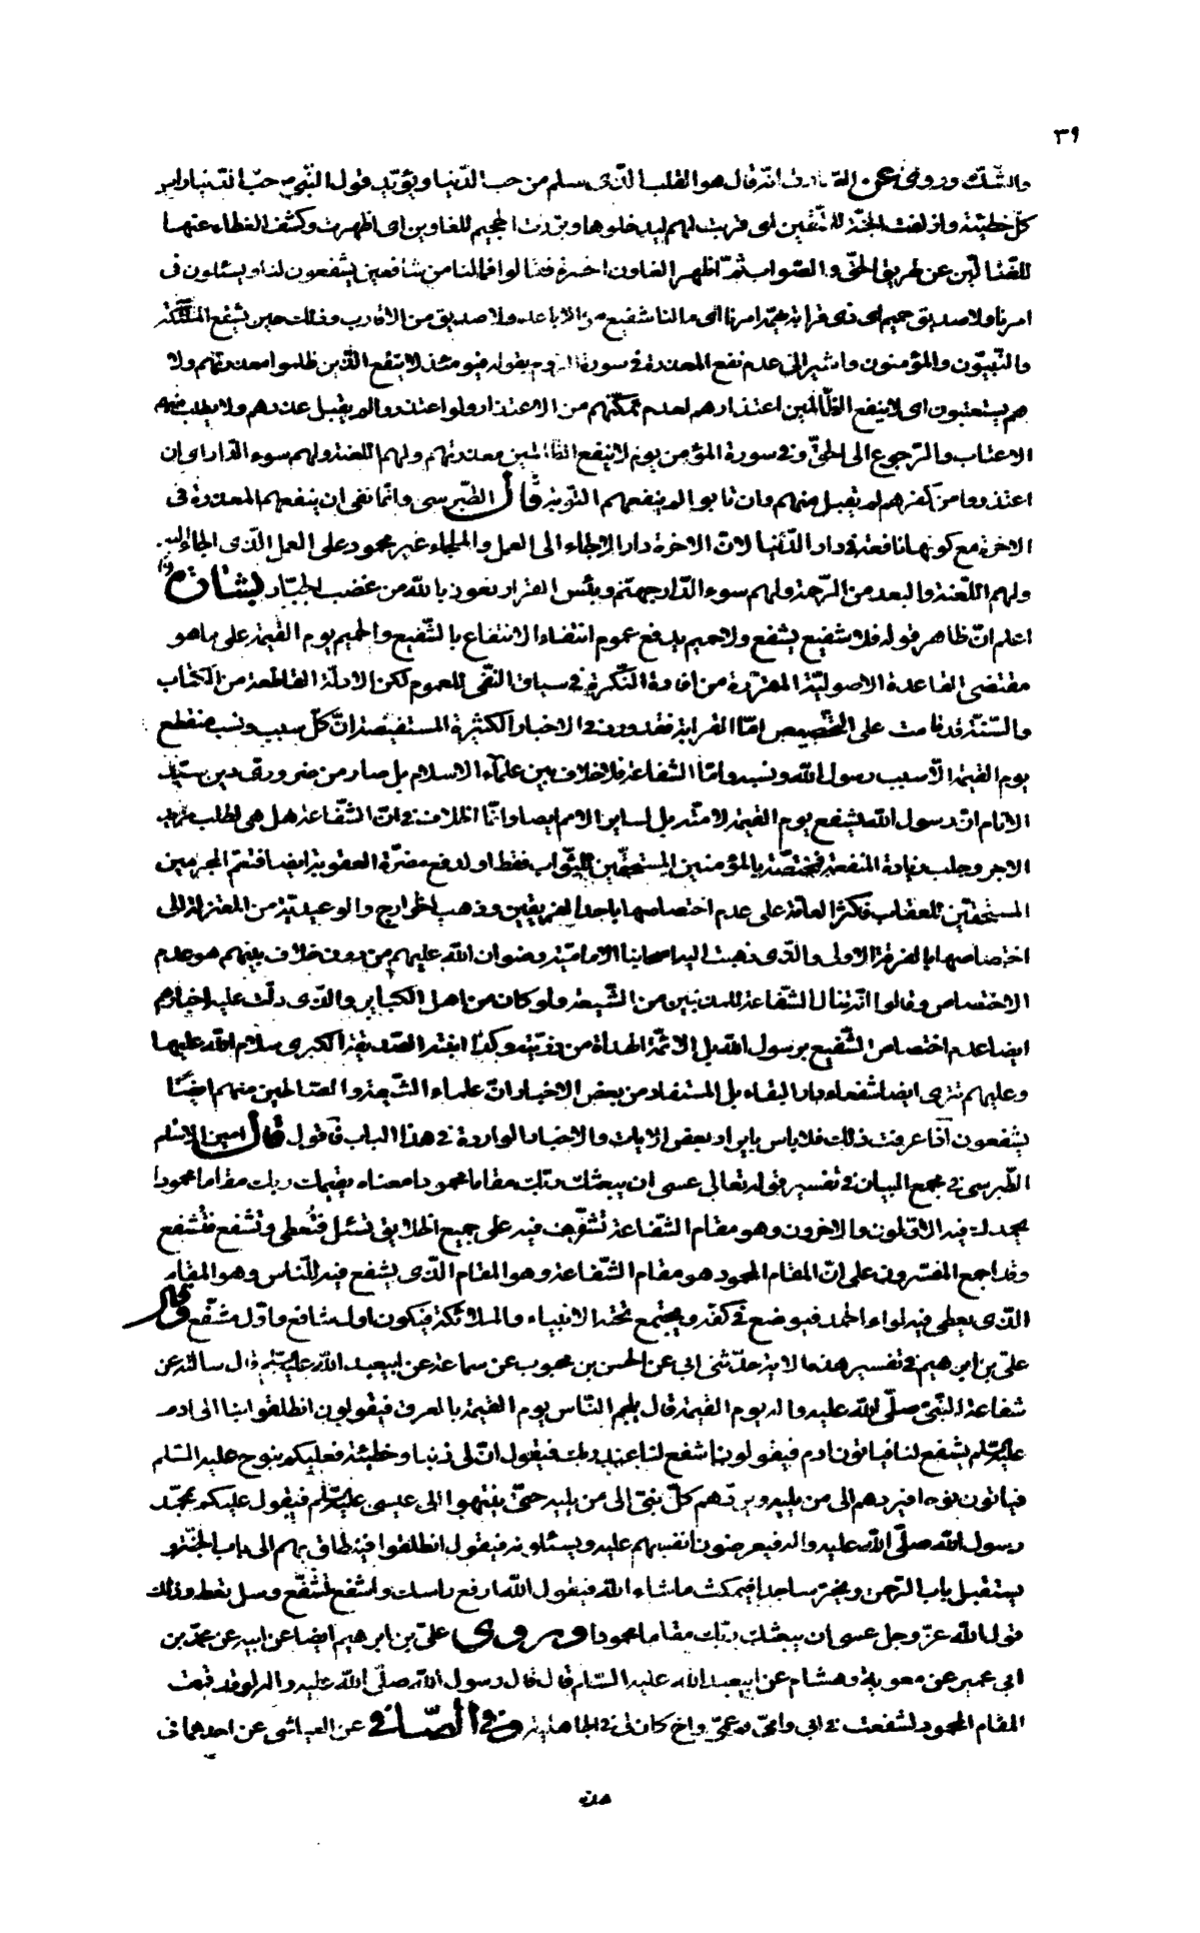 ٣٩
والشك وروى عن الصادق انه قال هو القلب الذى سلم من حب الدنيا ويؤيده قول النبي ص حب الدنيا راس
كل خطيئة وازلفت الجنة للمتقين اى قربت لهم ليدخلوها وبرزت الجحيم للغاوين اى اظهرت وكشف الغطاء عنها
للضالين عن طريق الحق والصواب ثم اظهر الغاون الحسرة فقالوا فما لنا من شافعين يشفعون لنا ويسئلون فى
امرنا ولا صديق حميم اى ذى قرابة يهمه امرنا اى ما لنا شفيع من الاباعد ولا صديق من الاقارب وذلك حين يشفع الملئكة
والنبيون والمؤمنون واشير الى عدم نفع المعذرة فى سورة الروم بقوله فيومئذ لا ينفع الذين ظلموا معذرتهم ولا
هم يستعتبون اى لا ينفع الظالمين اعتذارهم لعدم تمكنهم من الاعتذار ولو اعتذروا لم يقبل عذرهم ولا يطلب منهم
الاعتاب والرجوع الى الحق وفى سورة المؤمن يوم لا ينفع الظالمين معذرتهم ولهم اللعنة ولهم سوء الدار اى ان
اعتذروا من كفرهم لم يقبل منهم وان تابوا لم ينفعهم التوبة قال الطبرسى وانما نفى ان ينفعهم المعذرة فى
الاخرة مع كونها نافعة فى دار الدنيا لان الاخرة دار الالجاء الى العمل والملجاء غير محمود على العمل الذى الجاء اليه
ولهم اللعنة والبعد من الرحمة ولهم سوء الدار جهنم وبئس القرار نعوذ بالله من غضب الجبار بشارة
اعلم ان ظاهر قوله فلا شفيع يشفع ولا حميم يدفع عموم انتفاء الانتفاع بالشفيع والحميم يوم القيمة على ما هو
مقتضى القاعدة الاصولية المقررة من افادة النكرة فى سياق النفى للعموم لكن الادلة القاطعة من الكتاب
والسنة قد قامت على التخصيص اما القرابة فقد ورد فى الاخبار الكثيرة المستفيضة ان كل سبب ونسب منقطع
يوم القيمة الا سبب رسول الله ونسبه واما الشفاعة فلا خلاف بين علماء الاسلام بل صار من ضرورى دين سيد
الانام ان رسول الله يشفع يوم القيمة لامته بل لساير الامم ايضا وانما الخلاف فى ان الشفاعة هل هى لطلب مزيد
الاجر وجلب زيادة المنفعة فمختصة بالمؤمنين المستحقين للثواب فقط او لدفع مضرة العقوبة ايضا فتعم المجرمين
المستحقين للعقاب فاكثر العامة على عدم اختصاصها باحد الفريقين وذهب الخوارج والوعيدية من المعتزلة الى
اختصاصها بالفرقة الاولى والذى ذهبت اليه اصحابنا الامامية رضوان الله عليهم من دون خلاف بينهم هو عدم
الاختصاص وقالوا انه تنال الشفاعة للمذنبين من الشيعة ولو كان من اهل الكبائر والذى دلت عليه اخبارهم
ايضا عدم اختصاص الشفيع برسول الله بل الائمة الهداة من ذريته وكذا ابنته الصديقة الكبرى سلام الله عليها
وعليهم تترى ايضا شفعاء دار البقاء بل المستفاد من بعض الاخبار ان علماء الشيعة والصالحين منهم ايضا
يشفعون اذا عرفت ذلك فلا باس بايراد بعض الايات والاخبار الواردة فى هذا الباب فاقول قال امين الاسلام
الطبرسى فى مجمع البيان فى تفسير قوله تعالى عسى ان يبعثك ربك مقاما محمودا معناه يقيمك ربك مقاما محمودا
يحمدك فيه الاولون والاخرون وهو مقام الشفاعة تشرف فيه على جميع الخلايق تسئل فتعطى وتشفع فتشفع
وقد اجمع المفسرون على ان المقام المحمود هو مقام الشفاعة وهو المقام الذى يشفع فيه للناس وهو المقام
الذى يعطى فيه لواء الحمد فيوضع فى كفه ويجتمع تحته الانبياء والملائكة فيكون اول شافع واول مشفع وقال
على بن ابرهيم فى تفسير هذه الاية حدثنى ابى عن الحسن بن محبوب عن سماعة عن ابيعبد الله عليه السلام قال سالته عن
شفاعة النبى صلى الله عليه واله يوم القيمة قال يلجم الناس يوم القيمة بالعرق فيقولون انطلقوا بنا الى ادم
عليه السلم يشفع لنا فياتون ادم فيقولون اشفع لنا عند ربك فيقول ان لى ذنبا وخطيئة فعليكم بنوح عليه السلم
فياتون نوحا فيردهم الى من يليه ويردهم كل نبى الى من يليه حتى ينتهوا الى عيسى عليه السلم فيقول عليكم بمحمد
رسول الله صلى الله عليه واله فيعرضون انفسهم عليه ويسئلونه فيقول انطلقوا فينطلق بهم الى باب الجنة و
يستقبل باب الرحمن ويخر ساجدا فيمكث ما شاء الله فيقول الله ارفع راسك واشفع تشفع وسل تعط وذلك
قول الله عز وجل عسى ان يبعثك ربك مقاما محمودا وروى على بن ابرهيم ايضا عن ابيه عن محمد بن
ابى عمير عن معوية وهشام عن ابيعبد الله عليه السلام قال قال رسول الله صلى الله عليه واله لو قد قمت
المقام المحمود لشفعت فى ابى وامى وعمى واخ كان لى فى الجاهلية وفى الصافى عن العياشى عن احدهما فى